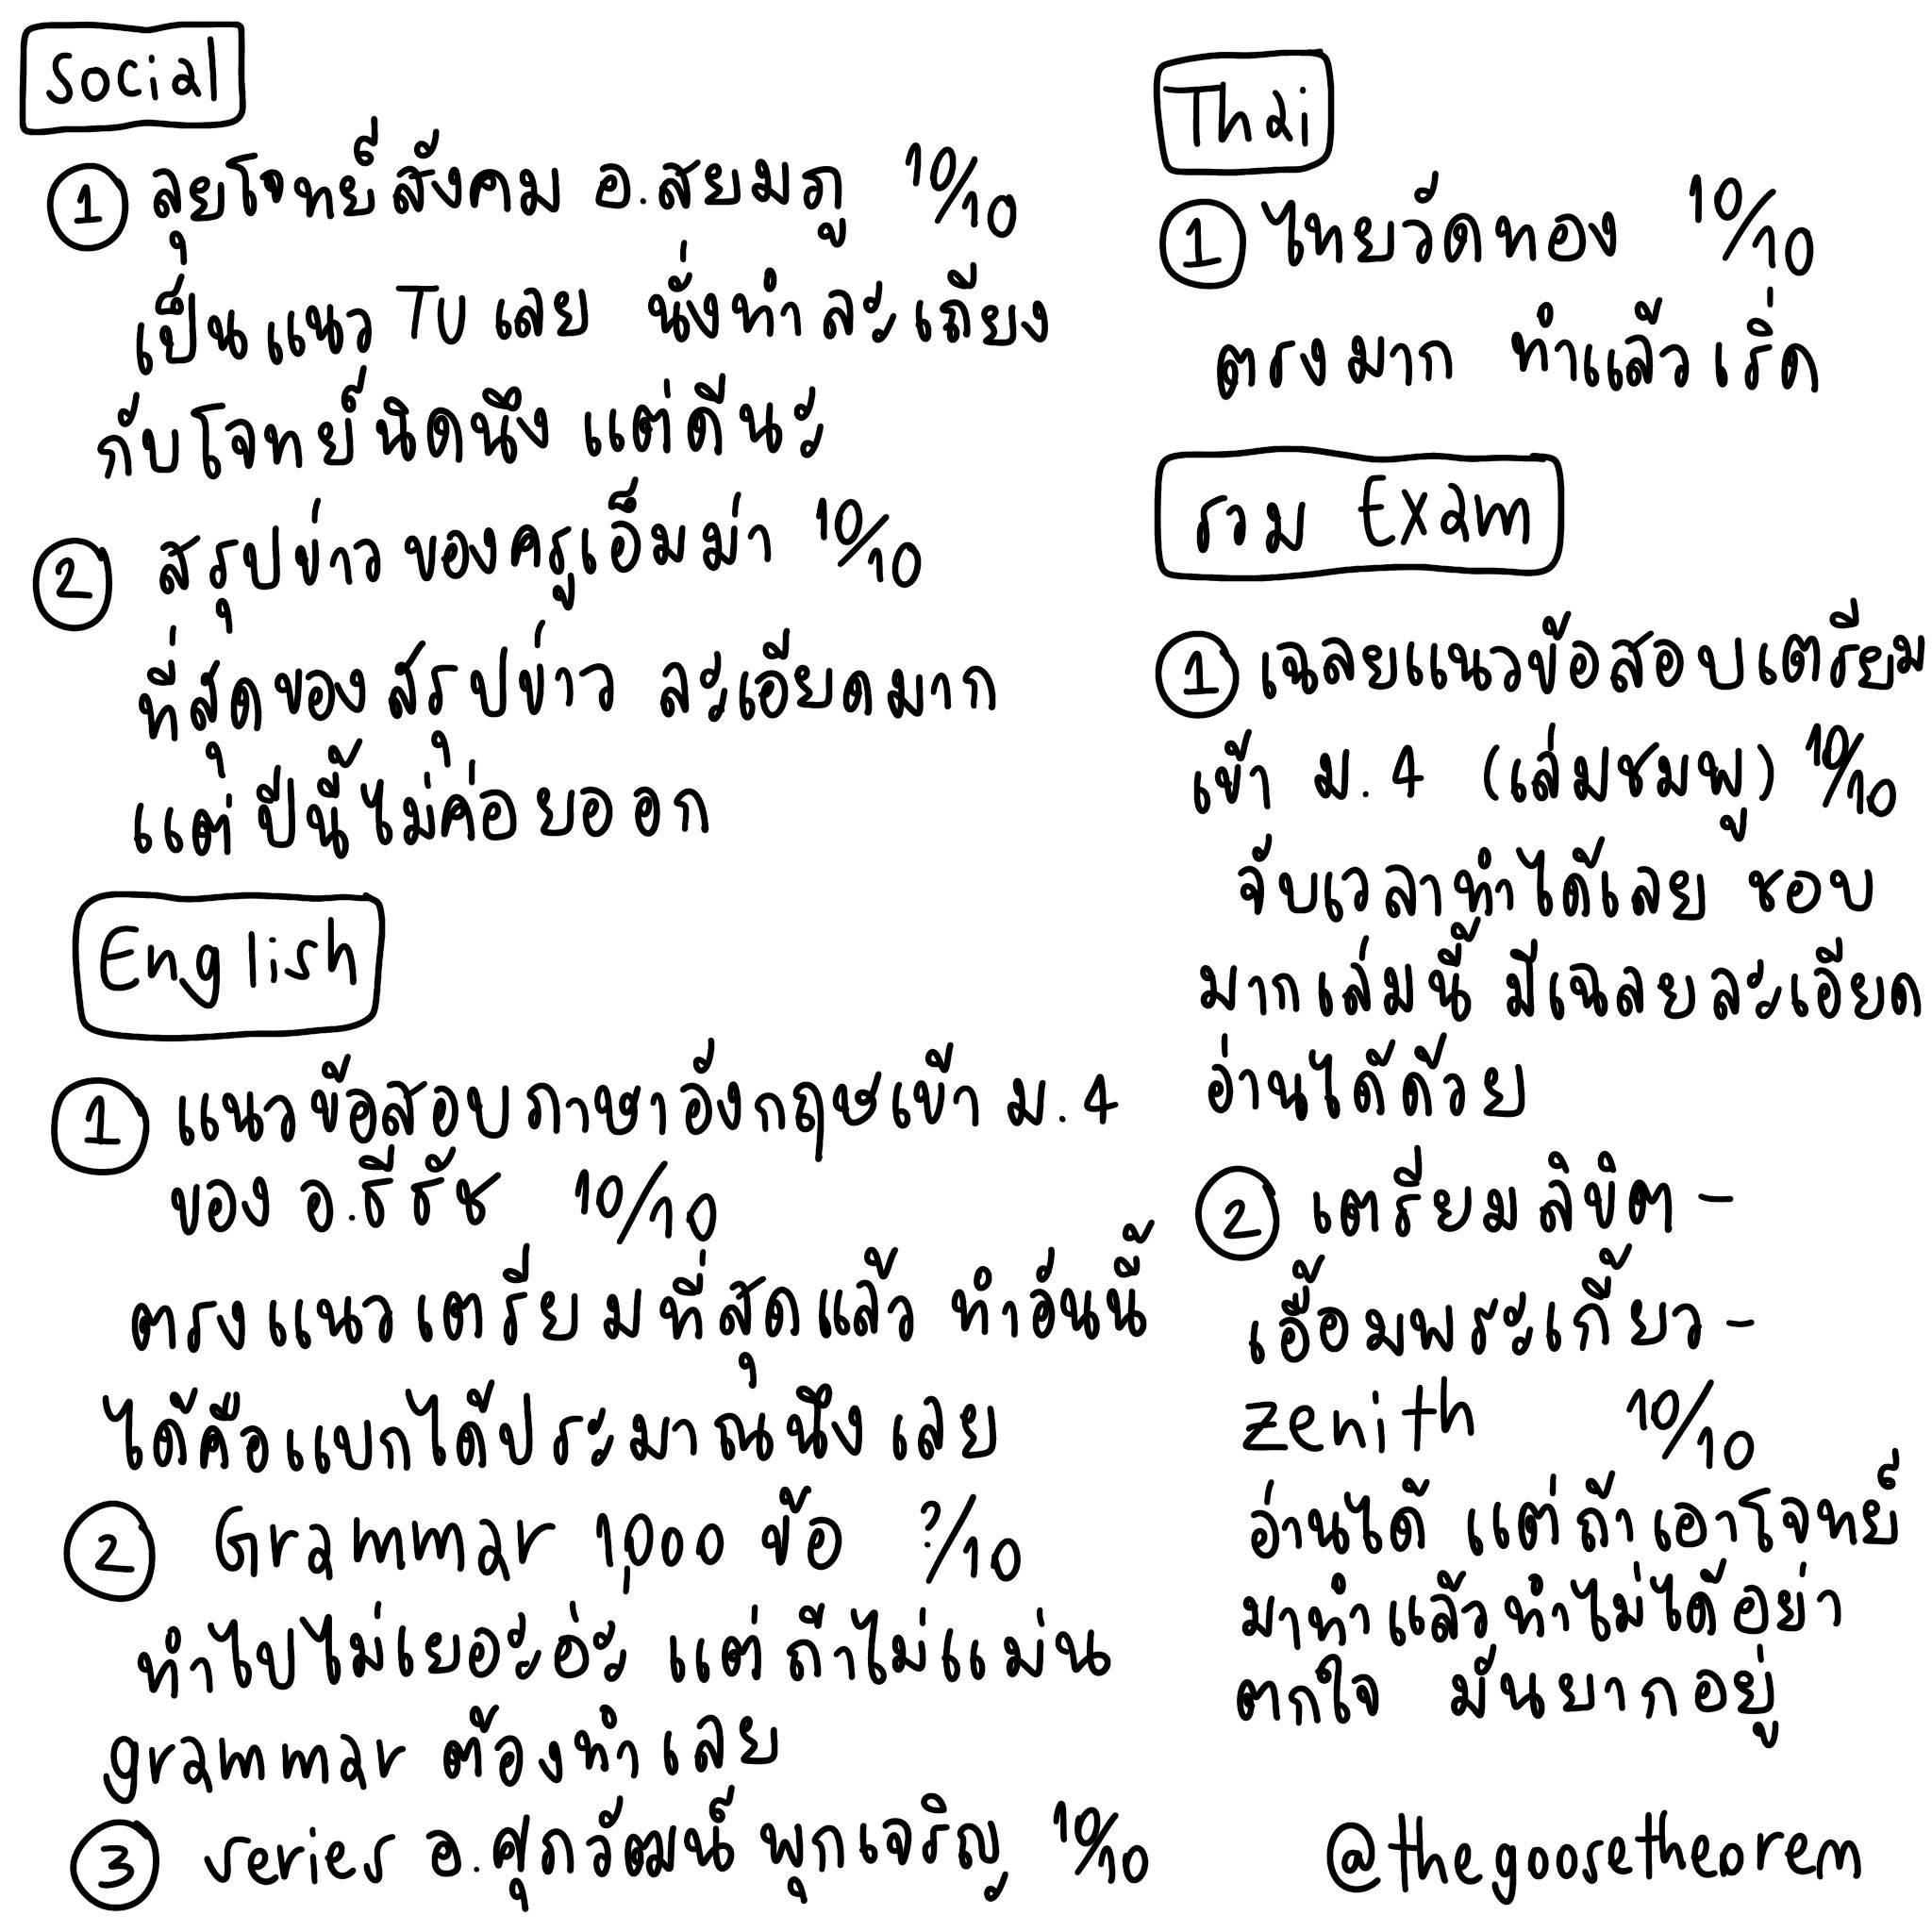 Social
① ลุยโจทย์สังคม อ.สยมภู 10/10
เป็นแนว TU เลย นั่งทำละเถียง
กับโจทย์นิดนึง แต่ดีนะ
② สรุปข่าวของครูเอ็มม่า 10/10
ที่สุดของสรุปข่าว ละเอียดมาก
แต่ปีนี้ไม่ค่อยออก
English
① แนวข้อสอบภาษาอังกฤษเข้า ม.4
ของ อ.ธีรัช 10/10
ตรงแนวเตรียมที่สุดแล้ว ทำอันนี้
ได้คือแบกได้ประมาณนึงเลย
② Grammar 1,000 ข้อ ?/10
ทำไปไม่เยอะอ่ะ แต่ถ้าไม่แม่น
grammar ต้องทำเลย
③ series อ.ศุภวัฒน์ พุกเจริญ 10/10
Thai
① ไทยวัดทอง 10/10
ตรงมาก ทำแล้วเริ่ด
รวม Exam
① เฉลยแนวข้อสอบเตรียม
เข้า ม.4 (เล่มชมพู) 10/10
จับเวลาทำได้เลย ชอบ
มากเล่มนี้ มีเฉลยละเอียด
อ่านได้ด้วย
② เตรียมลิขิต-
เอื้อมพระเกี้ยว-
zenith 10/10
อ่านได้ แต่ถ้าเอาโจทย์
มาทำแล้วทำไม่ได้อย่า
ตกใจ มันยากอยู่
@thegoosetheorem